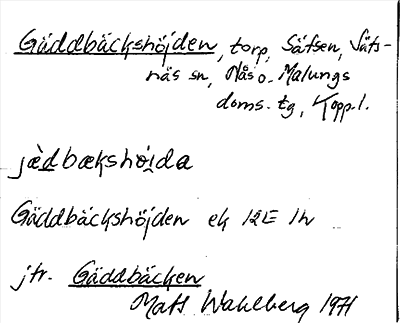 Gäddbäckshöjden, torp, Säfsen, Säfs-
näs sn, Nås o. Malungs
doms. tg, Kopp. l.
jæ̀dbækshöi̯da
Gäddbäckshöjden ek 12E 1h
jfr. Gäddbäcken
Mats Wahlberg 1971